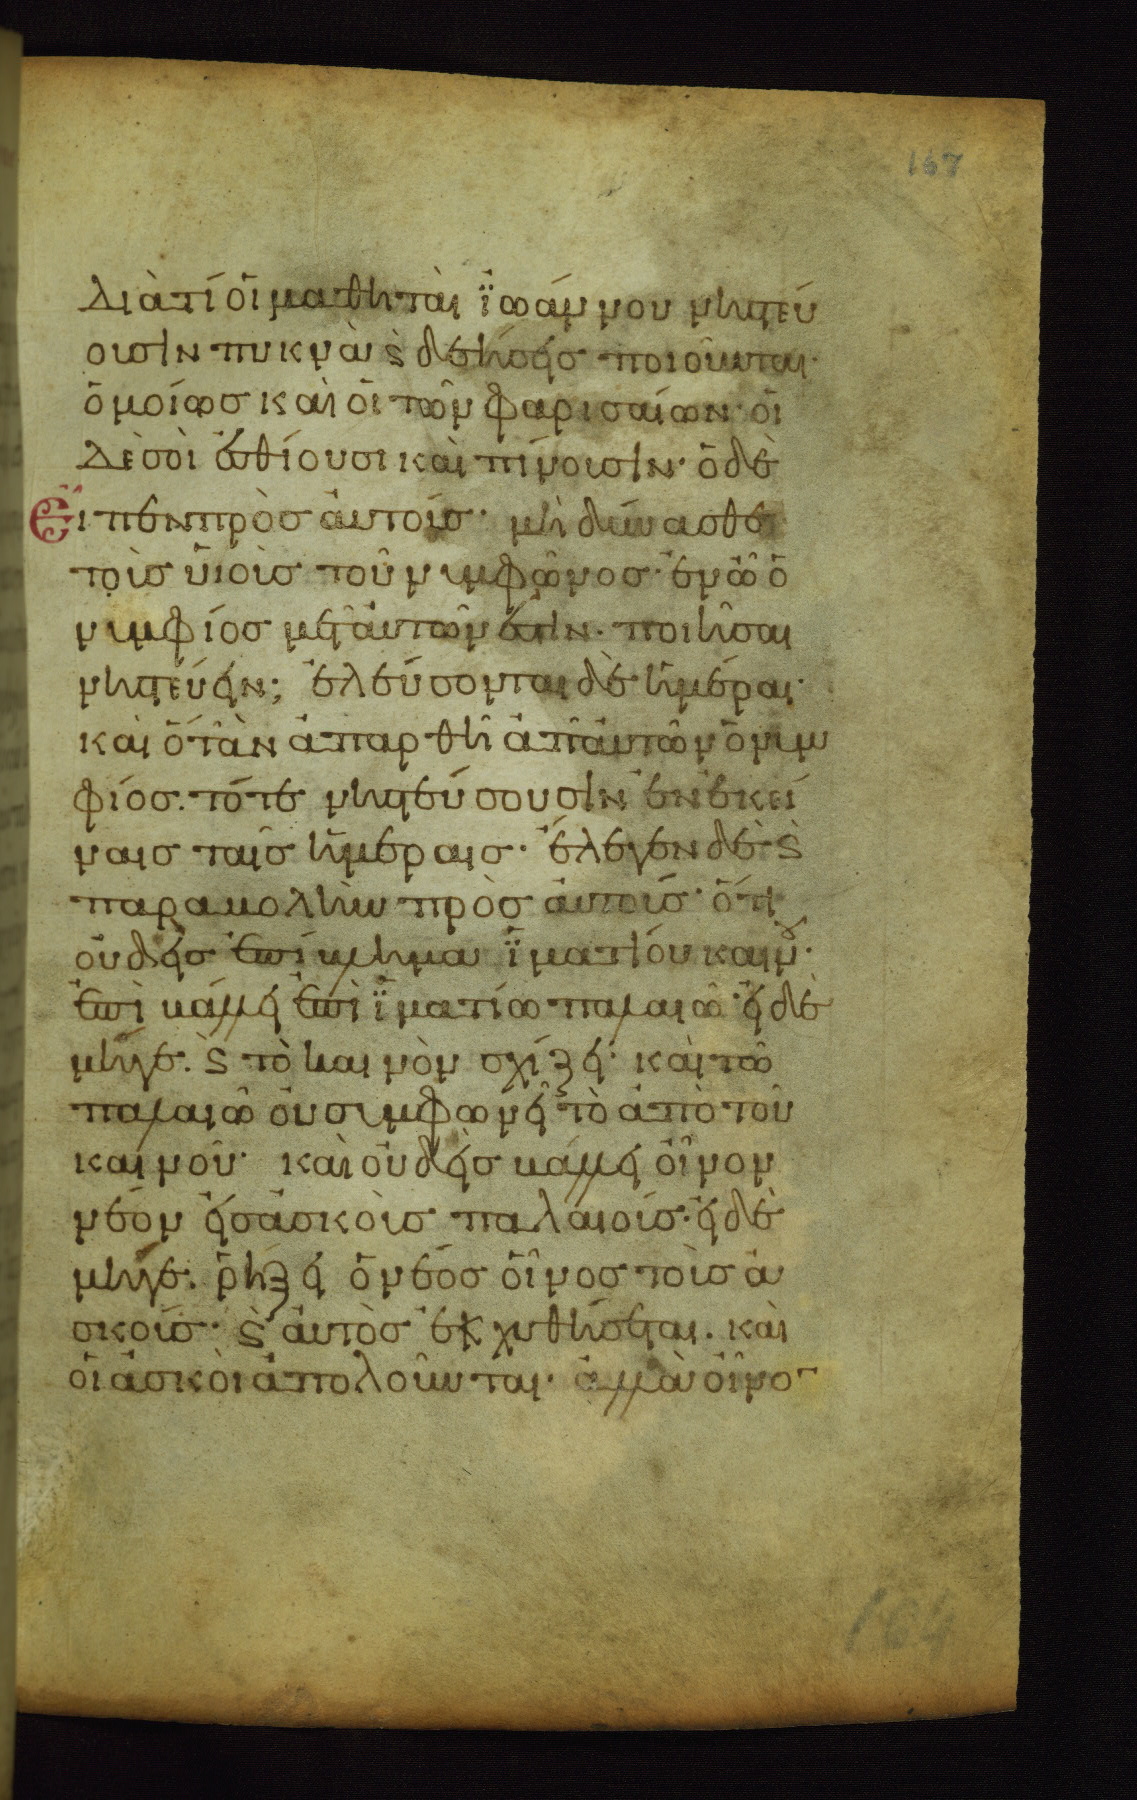 167
Διὰτί οἱ μαθηταὶ ϊωάννου νηστεύ
ουσιν πυκνὰ ϛ δεήσεις ποιοῦνται·
ὁμοίως καὶ οἱ τῶν φαρισαίων· οἱ
δὲ σοὶ ἐσθίουσι καὶ πίνουσιν· ὁ δὲ
Εἶπεν πρὸς αὐτούς· μὴ δύνασθε
τοὺς υἱοὺς τοῦ νυμφῶνος· ἐν ᾧ ὁ
νυμφίος μετ αὐτῶν ἐστὶν· ποιῆσαι
νηστεύειν; ἐλεύσονται δὲ ἡμέραι·
καὶ ὅταν ἀπαρθῆ ἀπ αὐτῶν ὁ νυμ
φίος. τότε νηστεύσουσιν ἐν ἐκεί
ναις ταῖς ἡμέραις· ἔλεγεν δὲ ϛ
παραβολὴν πρὸς αὐτούς· ὅτι
οὐδεὶς ἐπίβλημα ϊματίου καινοῦ·
ἐπιβάλλει ἐπὶ ϊματίω παλαιῶ· εἰ δὲ
μήγε. ϛ τὸ καινὸν σχίζει· καὶ τῶ
παλαιῶ οὐ συμφωνεῖ τὸ ἀπὸ τοῦ
καινοῦ· καὶ οὐδεὶς βάλλει οἶνον
νέον εἰς ἀσκοὺς παλαιούς· εἰ δὲ
μήγε. ῥήξει ὁ νέος οἶνος τοὺς ἀ
σκούς· ϛ αὐτὸς ἐκχυθήσεται. καὶ
οἱ ἀσκοὶ ἀπολοῦνται· ἀλλὰ οἶνον
164